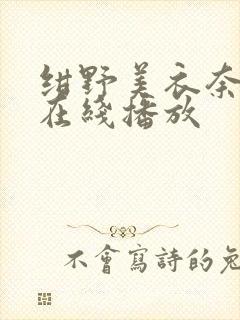 绀野美衣奈
在綫播放
不會寫詩的兔